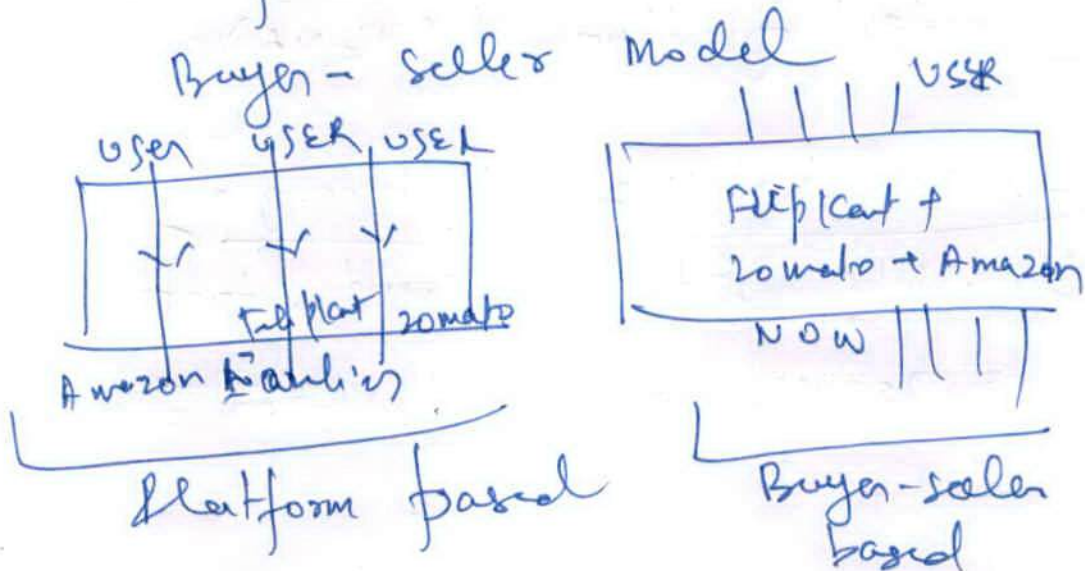 Buyer - Seller Model
User USER USER
Flipkart zomato
Amazon Earlier
Platform based
USER
Flipkart +
zomato + Amazon
NOW
Buyer-seller
based